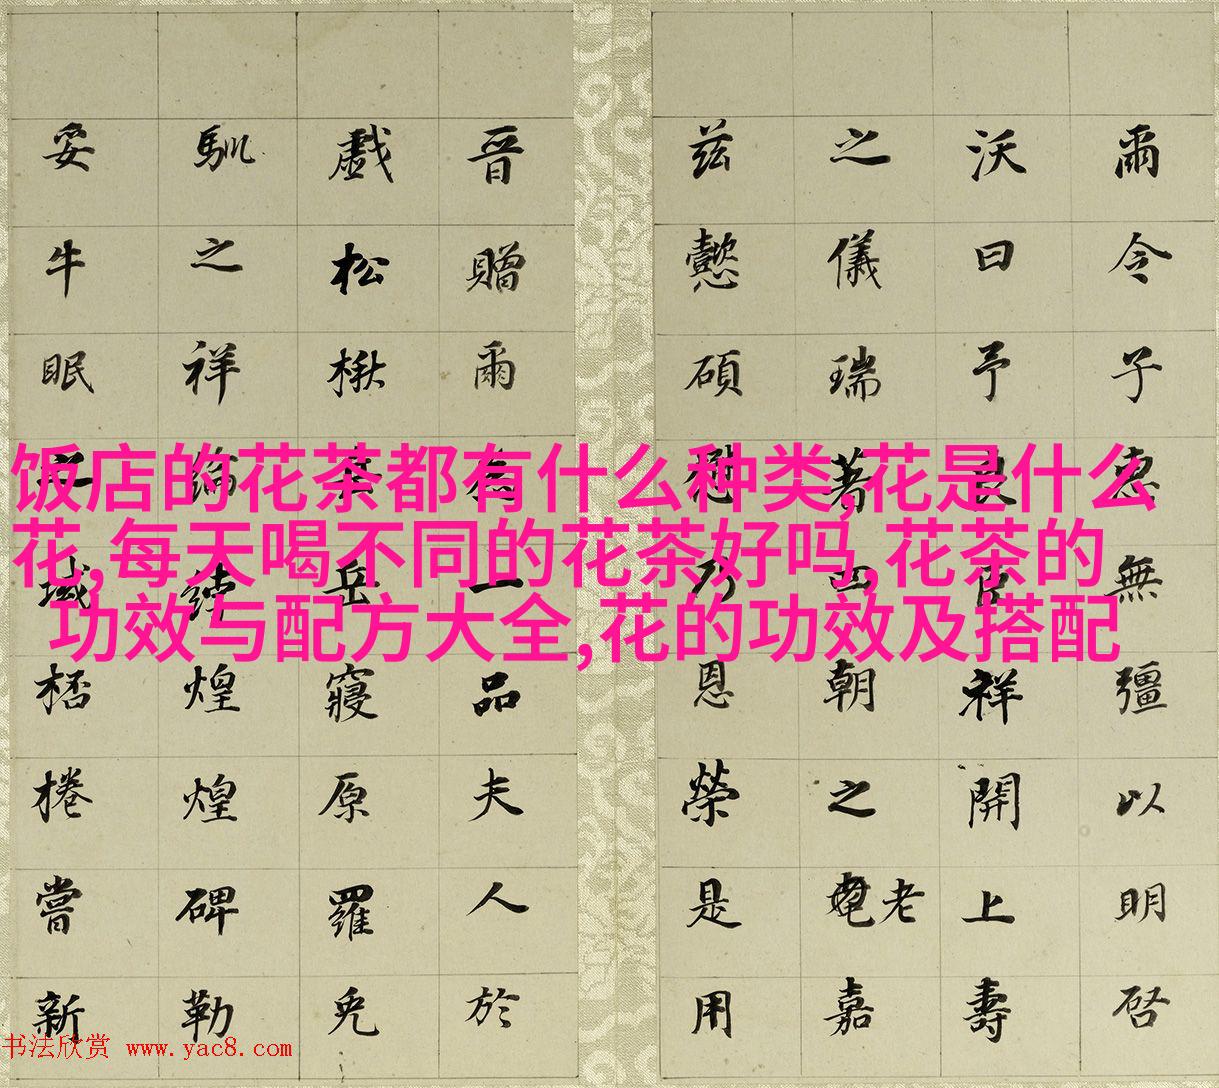 爾令子惠無彊以明启
沃曰予良臣祥開上壽
之儀瑞著四朝之耄老嘉
兹懿碩慰乃恩榮是用
晉贈爾為一品夫人於
戲松楸岳寢原羅
馴之祥綸綍煌煌碑勒
妥牛眠之域桮棬嘗新
饭店的花茶都有什么种类,花是什么
花,每天喝不同的花茶好吗,花茶的
功效与配方大全,花的功效及搭配
书法欣赏 www.yac8.com